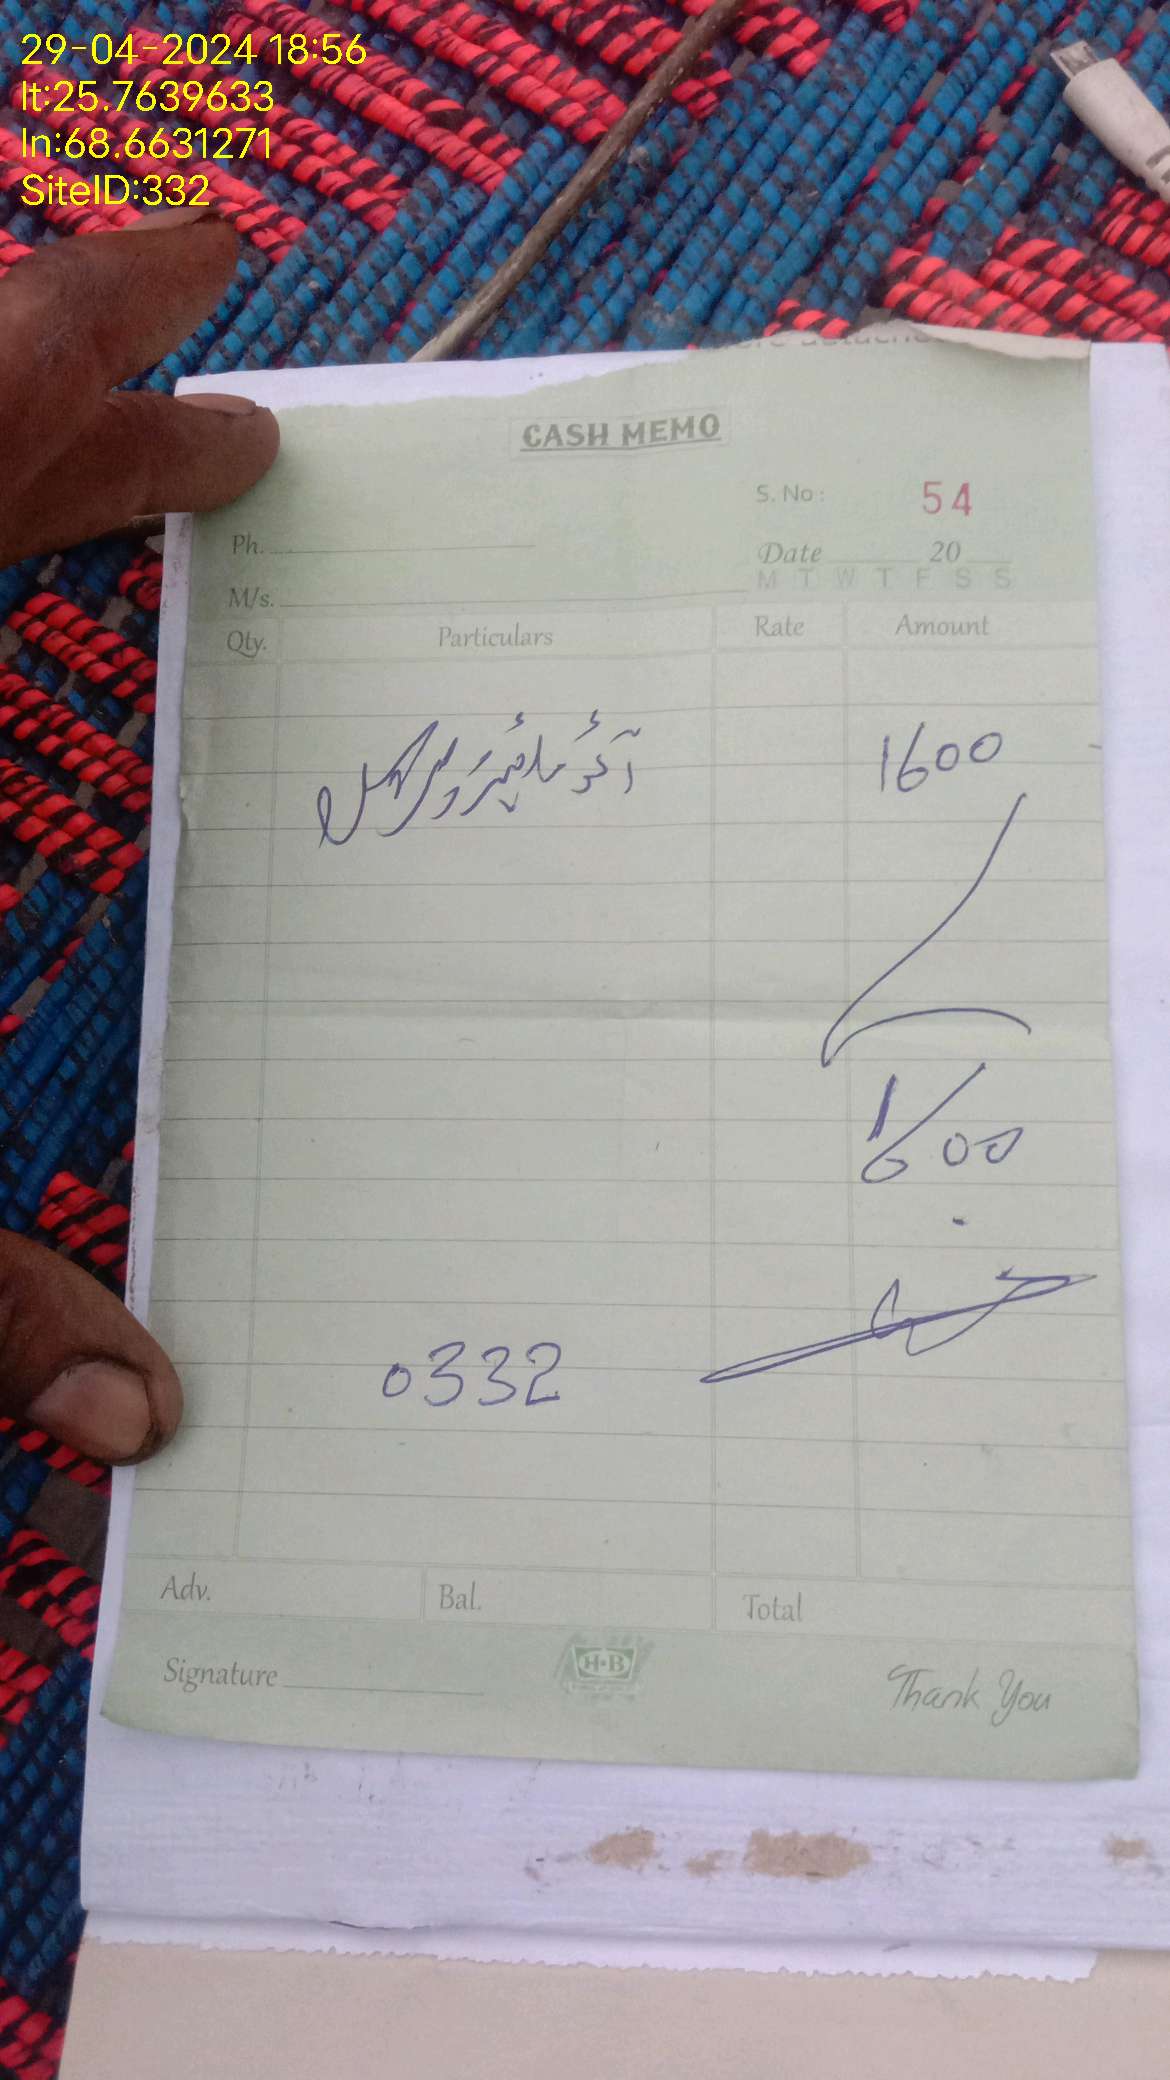 29-04-2024 18:56
lt:25.7639633
ln:68.6631271
SiteID:332
CASH MEMO
S. No : 54
Ph.
Date 20
M T W T F S S
M/s.
Qty. Particulars Rate Amount
1600
1600
0332
Adv. Bal. Total
Signature
H·B
Thank You